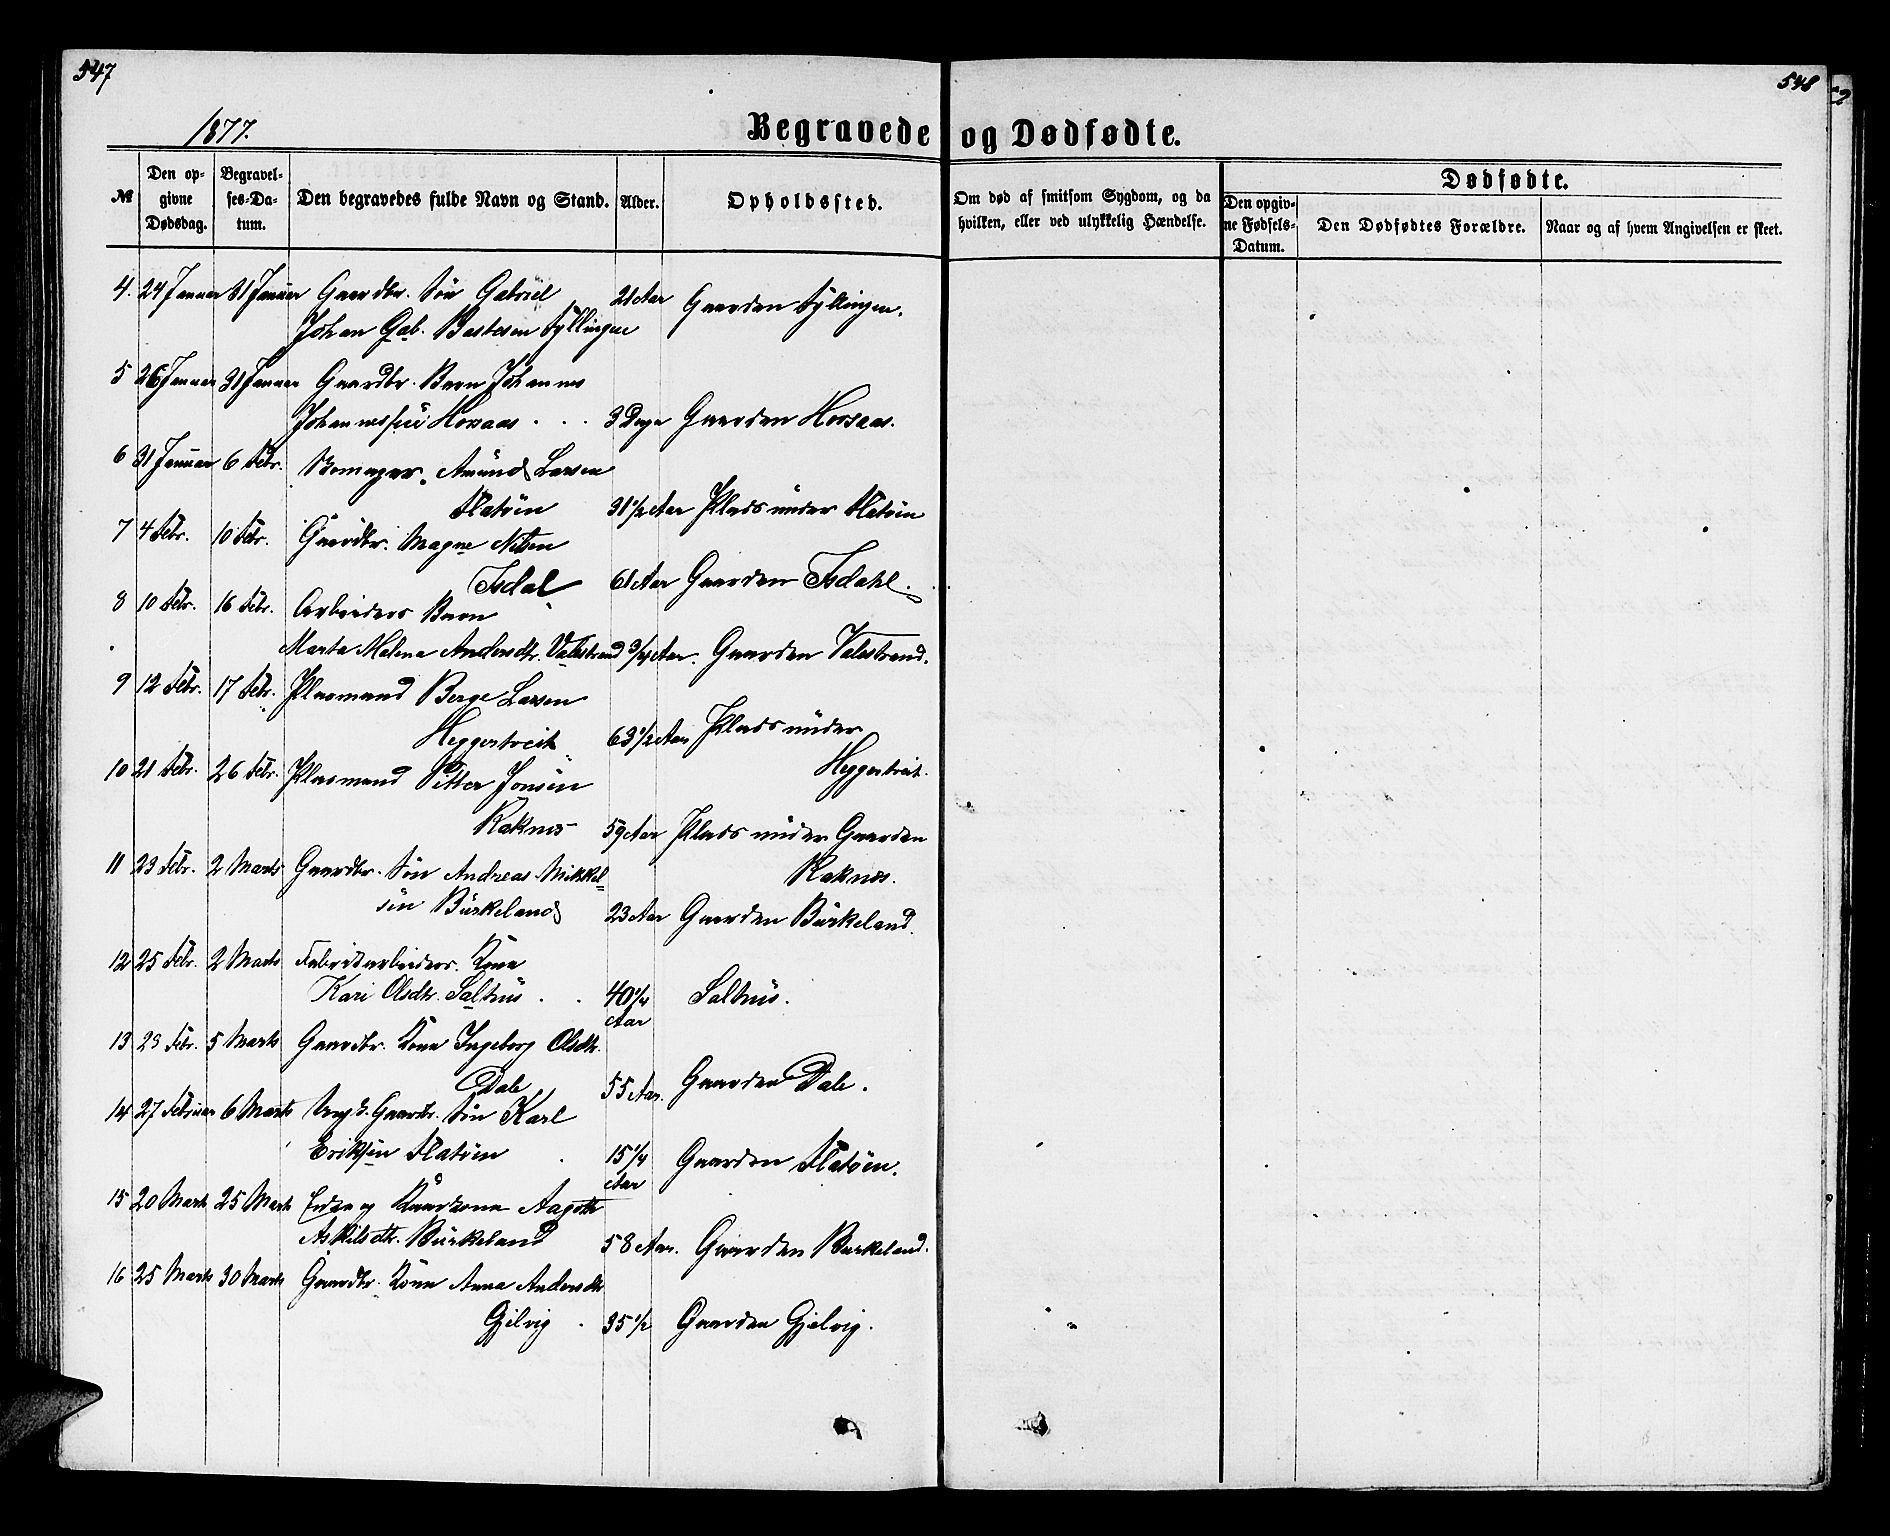 547
548
1877.
Begravede og Dødfødte.
№
Den opgivne Dødsdag.
Begravelses-Datum.
Den begravedes fulde Navn og Stand.
Alder.
Opholdssted.
Om død af smitsom Sygdom, og da hvilken, eller ved ulykkelig Hændelse.
Dødfødte.
Den opgivne Fødsels-Datum.
Den Dødfødtes Forældre.
Naar og af hvem Angivelsen er skeet.
4. 24 Januar 31 Januar Gaardbr. Søn Gabriel
Johan Gab. Bastesen Syllingen 21 Aar Gaarden Syllingen.
5 26 Januar 31 Januar Gaardbr. Barn Johannes
Johannessen Horsaas . . . 3 Dage Gaarden Horsaas.
6 31 Januar 6 Febr. Amund Larsen
Flatøen 31 1/2 Aar Plads under Flatøen
7 4 Febr. 10 Febr. Gaardbr. Magne Nilsen
Isdal 61 Aar Gaarden Isdahl.
8 10 Febr. 16 Febr. Arbeiders Barn
Marta Malena Andersdtr. Valestrand 3/4 Aar. Gaarden Valestrand.
9 12 Febr. 17 Febr. Plasmand Berge Larsen
Heggertveit 63 1/2 Aar Plads under
Heggertveit.
10 21 Febr. 26 Febr. Plasmand Petter Jonsen
Raknes 59 Aar Plads under Gaarden
Raknes.
11 23 Febr. 2 Marts Gaardbr. Søn Andreas Mikkel-
sen Birkeland 23 Aar Gaarden Birkeland.
12 25 Febr. 2 Marts Fabrikarbeiders. Kone
Kari Olsdtr. Salhus . . 40 1/4 Aar Salhus.
13 23 Febr. 5 Marts Gaardbr. Kone Ingeborg Olsdtr.
Dale 55 Aar. Gaarden Dale.
14 27 Februar 6 Marts Ung. Gaardbr. Søn Karl
Eriksen Flatøen . 15 1/4 Aar Gaarden Flatøen.
15 20 Marts 25 Marts Enke og Kaarkone Aagotte
Askelsdtr. Birkeland 58 Aar. Gaarden Birkeland.
16 25 Marts 30 Marts Gaardbr. Kone Anna Andersdtr
Gjelvig . 35 1/2 Gaarden Gjelvig.